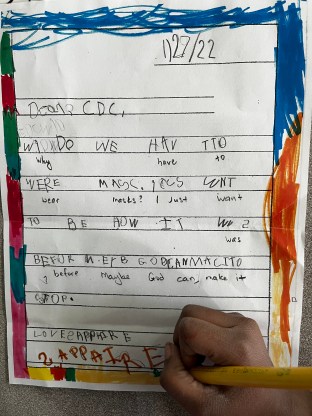 1/27/22
Dear CDC,
WI DO WE HAV TTO
Why have to
WERE MASC. I JUS WNT
wear masks? I just want
TO BE HOW IT WUZ
was
BEFUR M EB GOD CAN MAC ITO
before Maybe God can make it
STOP.
LOVE SAPPAIRE
SAPPAIRE